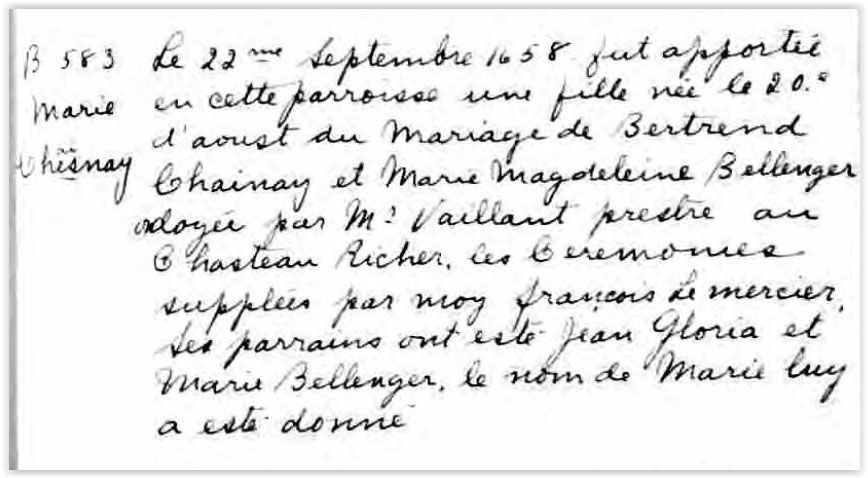 B 583
Marie
Chesnay
Le 22me Septembre 1658 fut apportée
en cette parroisse une fille née le 20.e
d'aoust du Mariage de Bertrend
Chainay et Marie Magdeleine Bellenger
ondoyée par Mr Vaillant prestre au
Chasteau Richer, les Ceremonies
supplées par moy françois Le mercier,
Ses parrains ont esté Jean Gloria et
Marie Bellenger, le nom de Marie luy
a esté donné